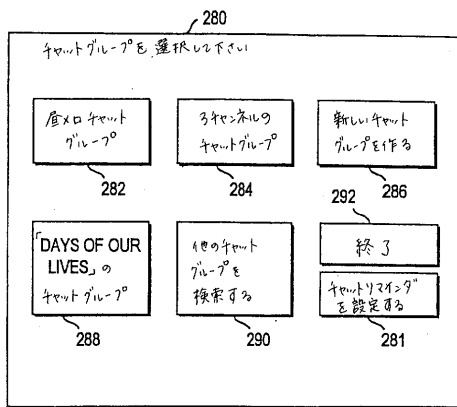 280
チャットグループを選択して下さい
昼メロチャット
グループ
282
3チャンネルの
チャットグループ
284
新しいチャット
グループを作る
286
「DAYS OF OUR
LIVES」の
チャットグループ
288
他のチャット
グループを
検索する
290
292
終了
チャットリマインダ
を設定する
281